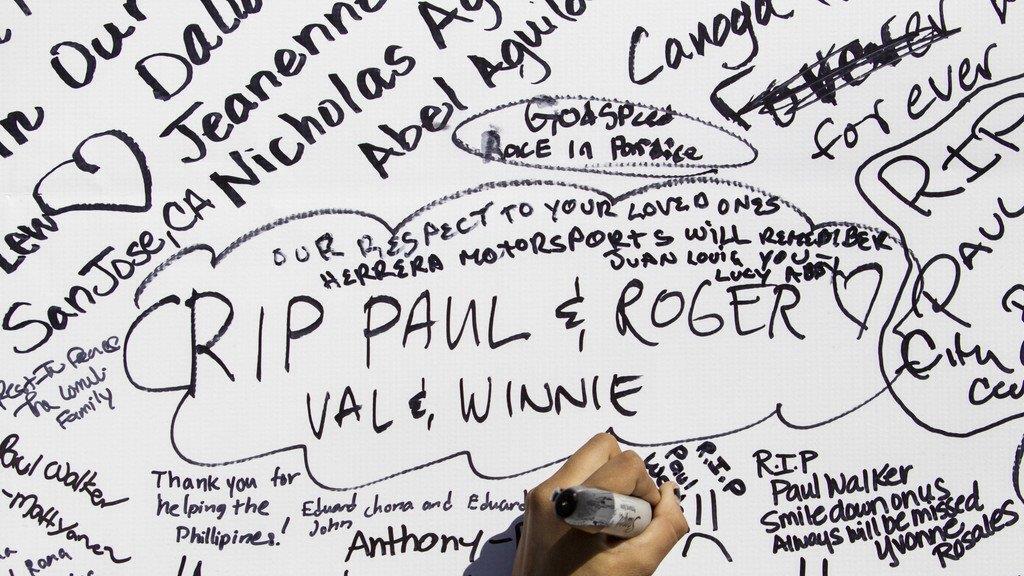 in Our
Dall
Jeanenne
Nicholas Ag
Abel Aguila
Canoga
Forever
forever
GODSPEED
Race in Pardice
Law
San Jose, CA
OUR RESPECT TO YOUR LOVED ONES
HERRERA MOTORSPORTS WILL REMEMBER
JUAN LOUIG YOU-
LUCY ABBY
RIP PAUL & ROGER
VAL & WINNIE
RIP
PAUL
City
Rest In Peace
Tha
Family
Paul Walker
-Matt Yanez
Rona
Thank you for
helping the
Phillipines!
Eduard chona and Eduard
John
Anthony-
R.I.P
Paul
R.I.P
Paul Walker
Smile down on us
Always will be missed
Yvonne
Rosales